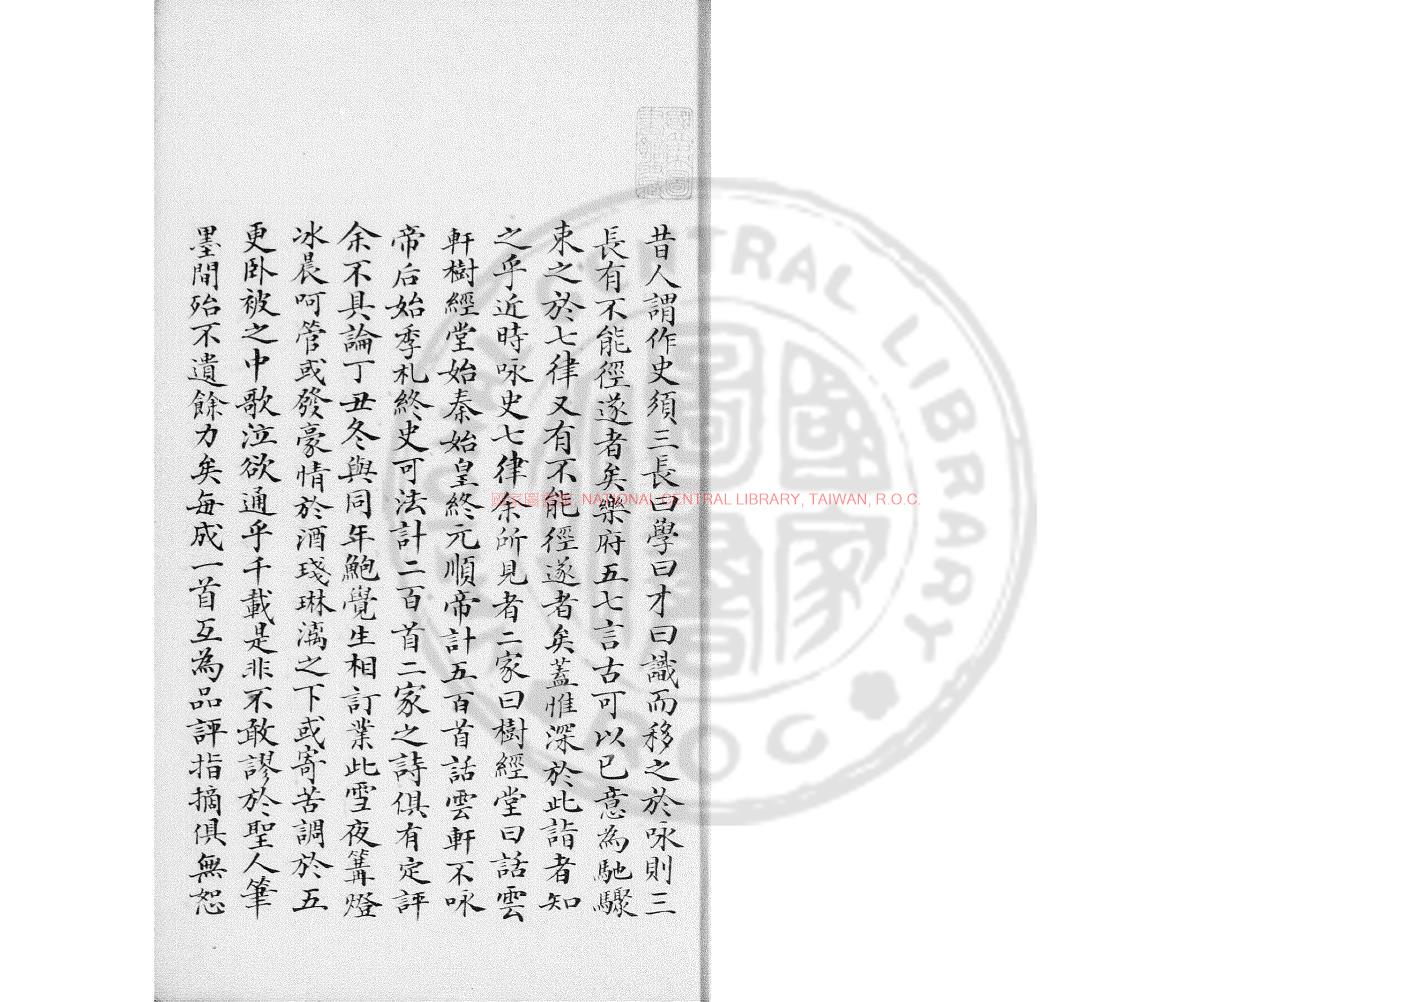 昔人謂作史須三長曰學曰才曰識而移之於咏則三
長有不能徑遂者矣樂府五七言古可以已意為馳驟
束之於七律又有不能徑遂者矣蓋惟深於此詣者知
之乎近時咏史七律余所見者二家曰樹經堂曰話雲
軒樹經堂始秦始皇終元順帝計五百首話雲軒不咏
帝后始季札終史可法計二百首二家之詩俱有定評
余不具論丁丑冬與同年鮑覺生相訂業此雪夜篝燈
冰晨呵管或發豪情於酒琖琳漓之下或寄苦調於五
更卧被之中歌泣欲通乎千載是非不敢謬於聖人筆
墨間殆不遺餘力矣每成一首互為品評指摘俱無恕
國家圖書館 NATIONAL CENTRAL LIBRARY, TAIWAN, R.O.C.
NATIONAL CENTRAL LIBRARY
ROC